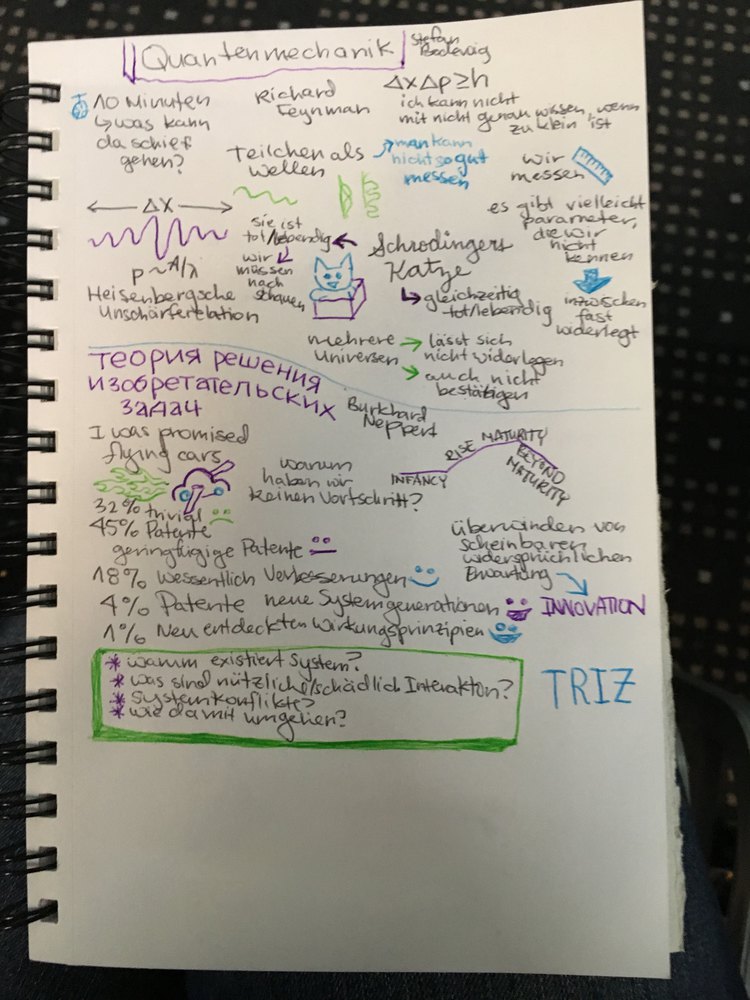 Quantenmechanik
Stefan
10 Minuten
↳ was kann
da schief
gehen?
Richard
Feynman
ΔxΔp≥h
ich kann nicht
mit nicht genau wissen, wenn
zu klein ist
Teilchen als
Wellen
man kann
nicht so gut
messen
wir
messen
← ΔX →
p~1/λ
Heisenbergsche
Unschärferelation
sie ist
tot/lebendig
wir
müssen
nach
schauen
Schrödingers
Katze
gleichzeitig
tot/lebendig
es gibt vielleicht
parameter,
die wir
nicht
kennen
inzwischen
fast
widerlegt
mehrere
Universen
→ lässt sich
nicht widerlegen
→ auch nicht
bestätigen
теория решения
изобретательских
задач
Burkhard
Neppert
I was promised
flying cars
warum
haben wir
keinen Vortschritt?
INFANCY
RISE
MATURITY
BEYOND
MATURITY
32% trivial
45% Patente
geringfügige Patente
18% wessentlich Verbesserungen
4% Patente neue Systemgenerationen
1% Neu entdeckten Wirkungsprinzipien
überwinden von
scheinbaren
widersprüchlichen
Erwartung
INNOVATION
* warum existiert System?
* was sind nützliche/schädlich Interakton?
* Systemkonflikte?
* wie damit umgehen?
TRIZ